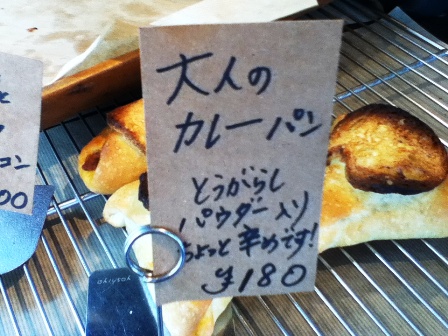 大人の
カレーパン
とうがらし
パウダー入り
ちょっと辛めです!
¥180
と
コン
00
yoshiyo